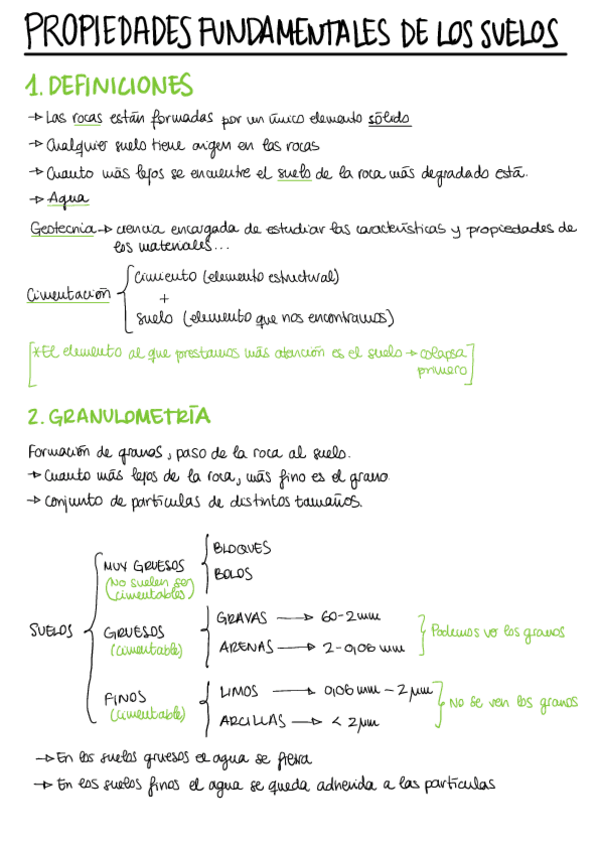 PROPIEDADES FUNDAMENTALES DE LOS SUELOS
1. DEFINICIONES
→ Las rocas están formadas por un único elemento sólido
→ Cualquier suelo tiene origen en las rocas
→ Cuanto más lejos se encuentre el suelo de la roca más degradado está.
→ Agua
Geotecnia → ciencia encargada de estudiar las características y propiedades de
los materiales...
Cimiento (elemento estructural)
Cimentación
+
suelo (elemento que nos encontramos)
[*El elemento al que prestamos más atención es el suelo → colapsa
primero]
2. GRANULOMETRÍA
Formación de granos, paso de la roca al suelo.
→ Cuanto más lejos de la roca, más fino es el grano
→ Conjunto de partículas de distintos tamaños.
BLOQUES
MUY GRUESOS
(No suelen ser
BOLOS
cimentables)
GRAVAS → 60-2 mm
SUELOS
GRUESOS
Podemos ver los granos
(cimentable)
ARENAS → 2-0,06 mm
LIMOS → 0,06 mm - 2 μm
FINOS
No se ven los granos
(cimentable)
ARCILLAS → < 2 μm
→ En los suelos gruesos el agua se filtra
→ En los suelos finos el agua se queda adherida a las partículas